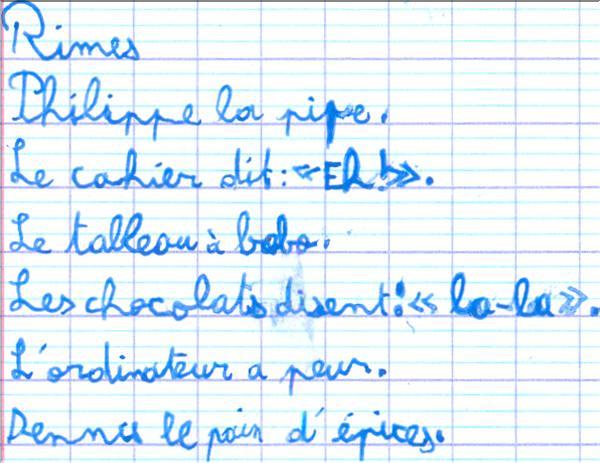 Rimes
Philippe la pipe.
Le cahier dit : « Eh ! ».
Le talleau à bobo.
Les chocolats disent : « la-la ».
L'ordinateur a peur.
le pain d'épices.